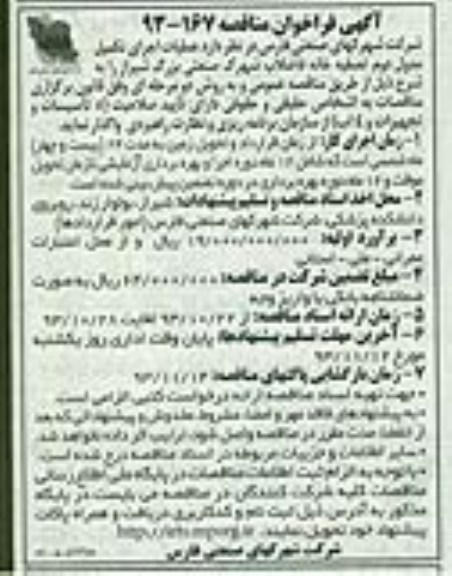 آگهی فراخوان مناقصه ۱۶۷-۹۳
شرکت شهرکهای صنعتی فارس در نظر دارد عملیات اجرای تکمیل
مدول دوم تصفیه خانه فاضلاب شهرک صنعتی بزرگ شیراز را به
شرح ذیل از طریق مناقصه عمومی و به روش دو مرحله ای وفق قانون برگزاری
مناقصات به اشخاص حقیقی و حقوقی دارای تأیید صلاحیت تأسیسات و
تجهیزات و از سازمان برنامه ریزی و نظارت راهبردی واگذار نماید.
۱- زمان اجرای کار: از زمان قرارداد و تحویل زمین به مدت ۲۴ (بیست و چهار)
ماه شمسی است که شامل ۱۲ ماه دوره اجرا و بهره برداری آزمایشی تا زمان تحویل
موقت و ۱۲ ماه دوره بهره برداری در دوره تضمین پیش بینی شده است.
۲- محل اخذ اسناد مناقصه و تسلیم پیشنهادات: شیراز، بولوار زند، روبروی
دانشکده پزشکی، شرکت شهرکهای صنعتی فارس (امور قراردادها)
۳- برآورد اولیه: ۱۹/۰۰۰/۰۰۰/۰۰۰ ریال و از محل اعتبارات
عمرانی - ملی - استانی
۴- مبلغ تضمین شرکت در مناقصه: ریال به صورت
ضمانتنامه بانکی یا واریز وجه
۵- زمان ارائه اسناد مناقصه: از ۹۳/۱۰/۲۲ لغایت ۹۳/۱۰/۲۸
۶- آخرین مهلت تسلیم پیشنهادها: پایان وقت اداری روز یکشنبه
مورخ ۹۳/۱۱/۱۲
۷- زمان بازگشایی پاکتهای مناقصه: ۹۳/۱۱/۱۳
• جهت تهیه اسناد مناقصه ارائه درخواست کتبی الزامی است.
• به پیشنهادهای فاقد مهر و امضا، مشروط، مخدوش و پیشنهاداتی که بعد
از انقضا مدت مقرر در مناقصه واصل شود، ترتیب اثر داده نخواهد شد.
• سایر اطلاعات و جزییات مربوطه در اسناد مناقصه درج شده است.
• با توجه به الزام ثبت اطلاعات مناقصات در پایگاه ملی اطلاع رسانی
مناقصات کلیه شرکت کنندگان در مناقصه می بایست در پایگاه
مذکور به آدرس ذیل ثبت نام و کد کاربری دریافت و همراه پاکات
پیشنهاد خود تحویل نمایند. http://iets.mporg.ir
شرکت شهرکهای صنعتی فارس